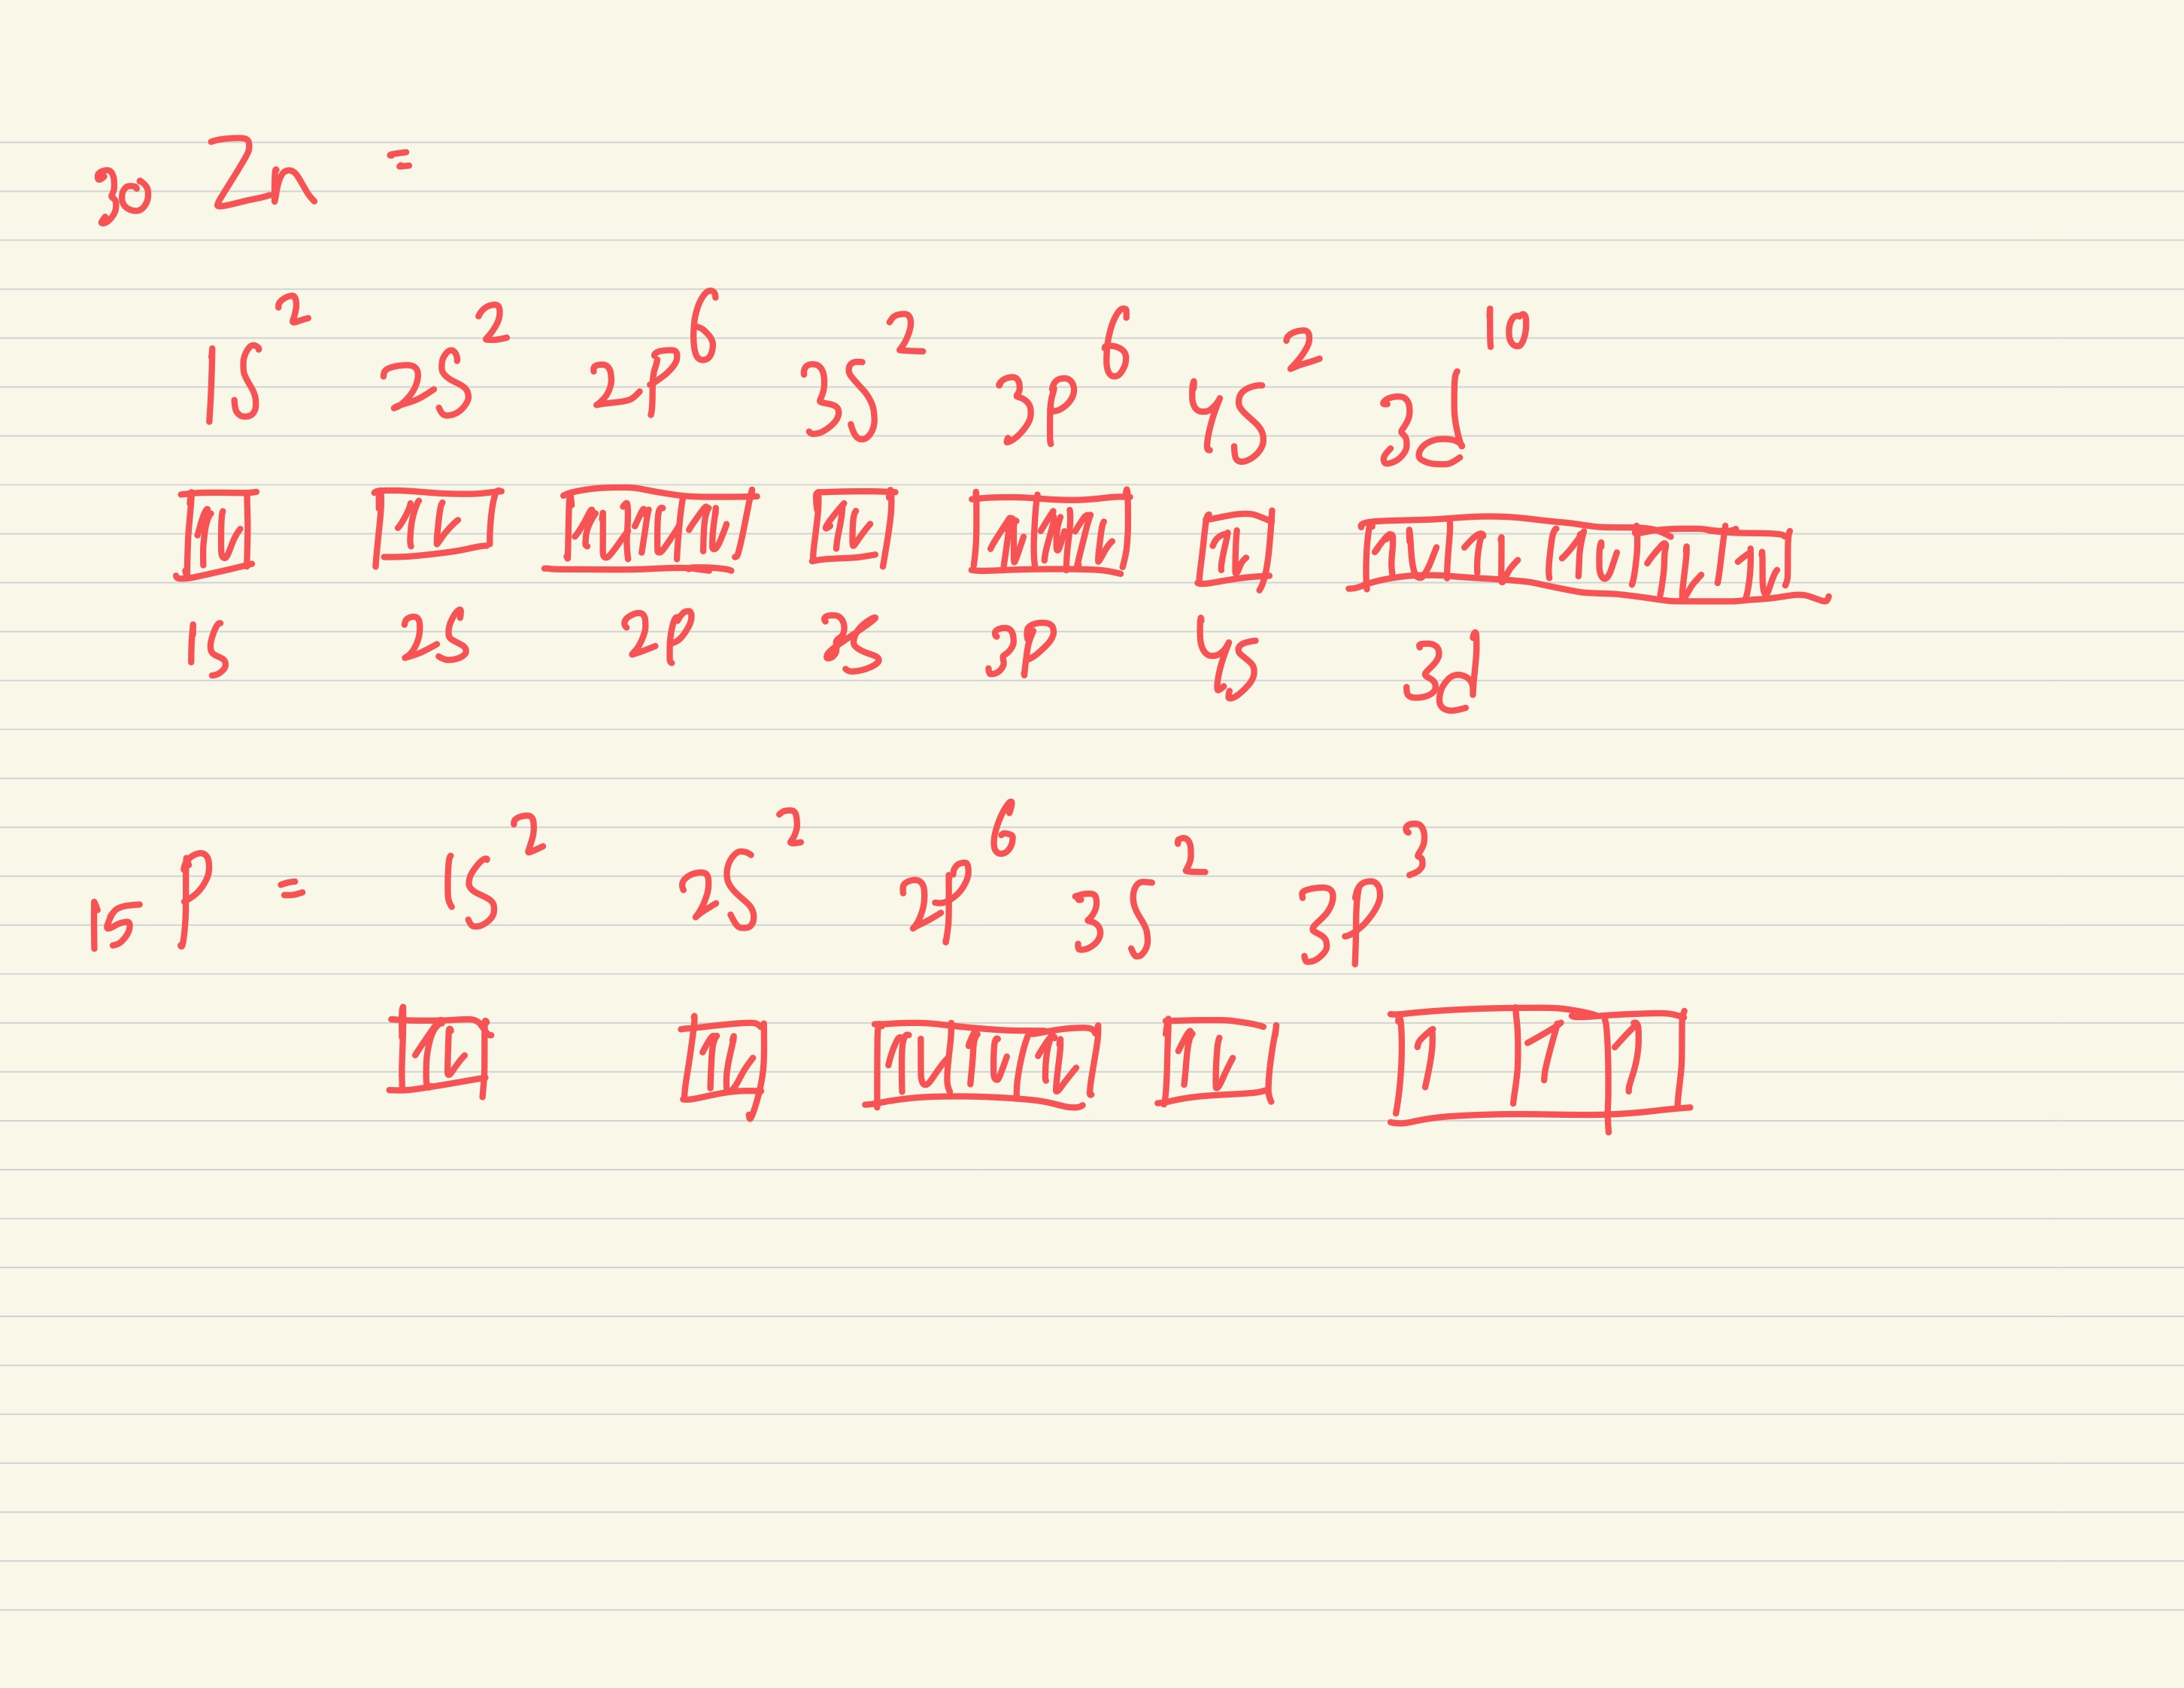 30 Zn =
1s² 2s² 2p⁶ 3s² 3p⁶ 4s² 3d¹⁰
1s 2s 2p 3s 3p 4s 3d
15 P = 1s² 2s² 2p⁶ 3s² 3p³